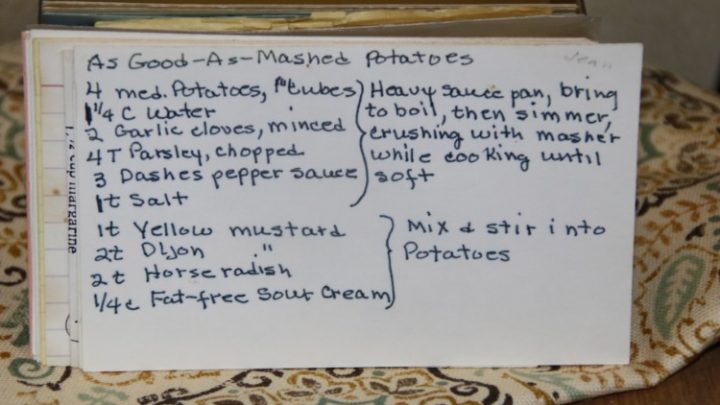 As Good-As-Mashed Potatoes
Jean
4 med. Potatoes, 1" cubes
1 1/4 C Water
2 Garlic cloves, minced
4 T Parsley, chopped
3 Dashes pepper sauce
1t Salt
Heavy sauce pan, bring
to boil, then simmer,
crushing with masher
while cooking until
soft
1t Yellow mustard
2t Dijon "
2t Horseradish
1/4c Fat-free Sour Cream
Mix & stir into
Potatoes
margarine